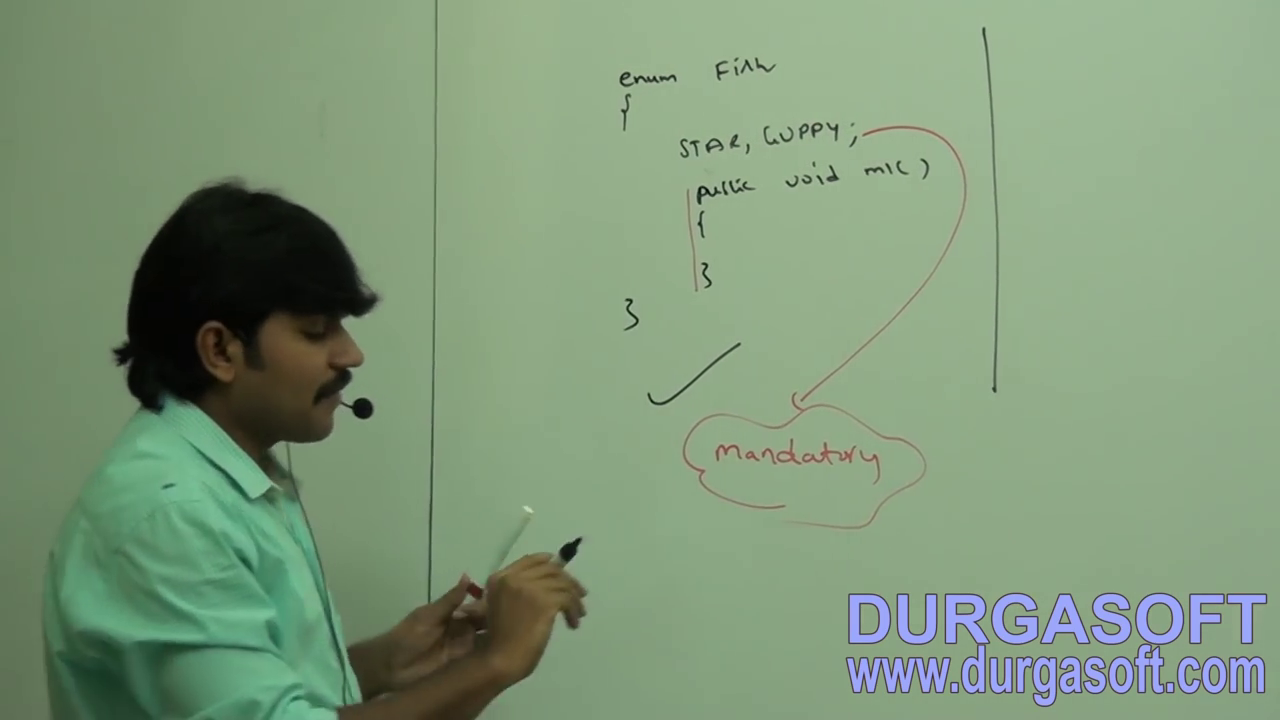 enum Fish
{
STAR, GUPPY;
public void m1()
{
}
}
mandatory
DURGASOFT
www.durgasoft.com